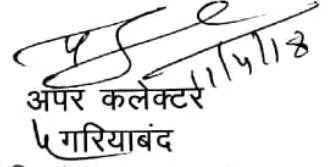 11/4/18
अपर कलेक्टर
गरियाबंद